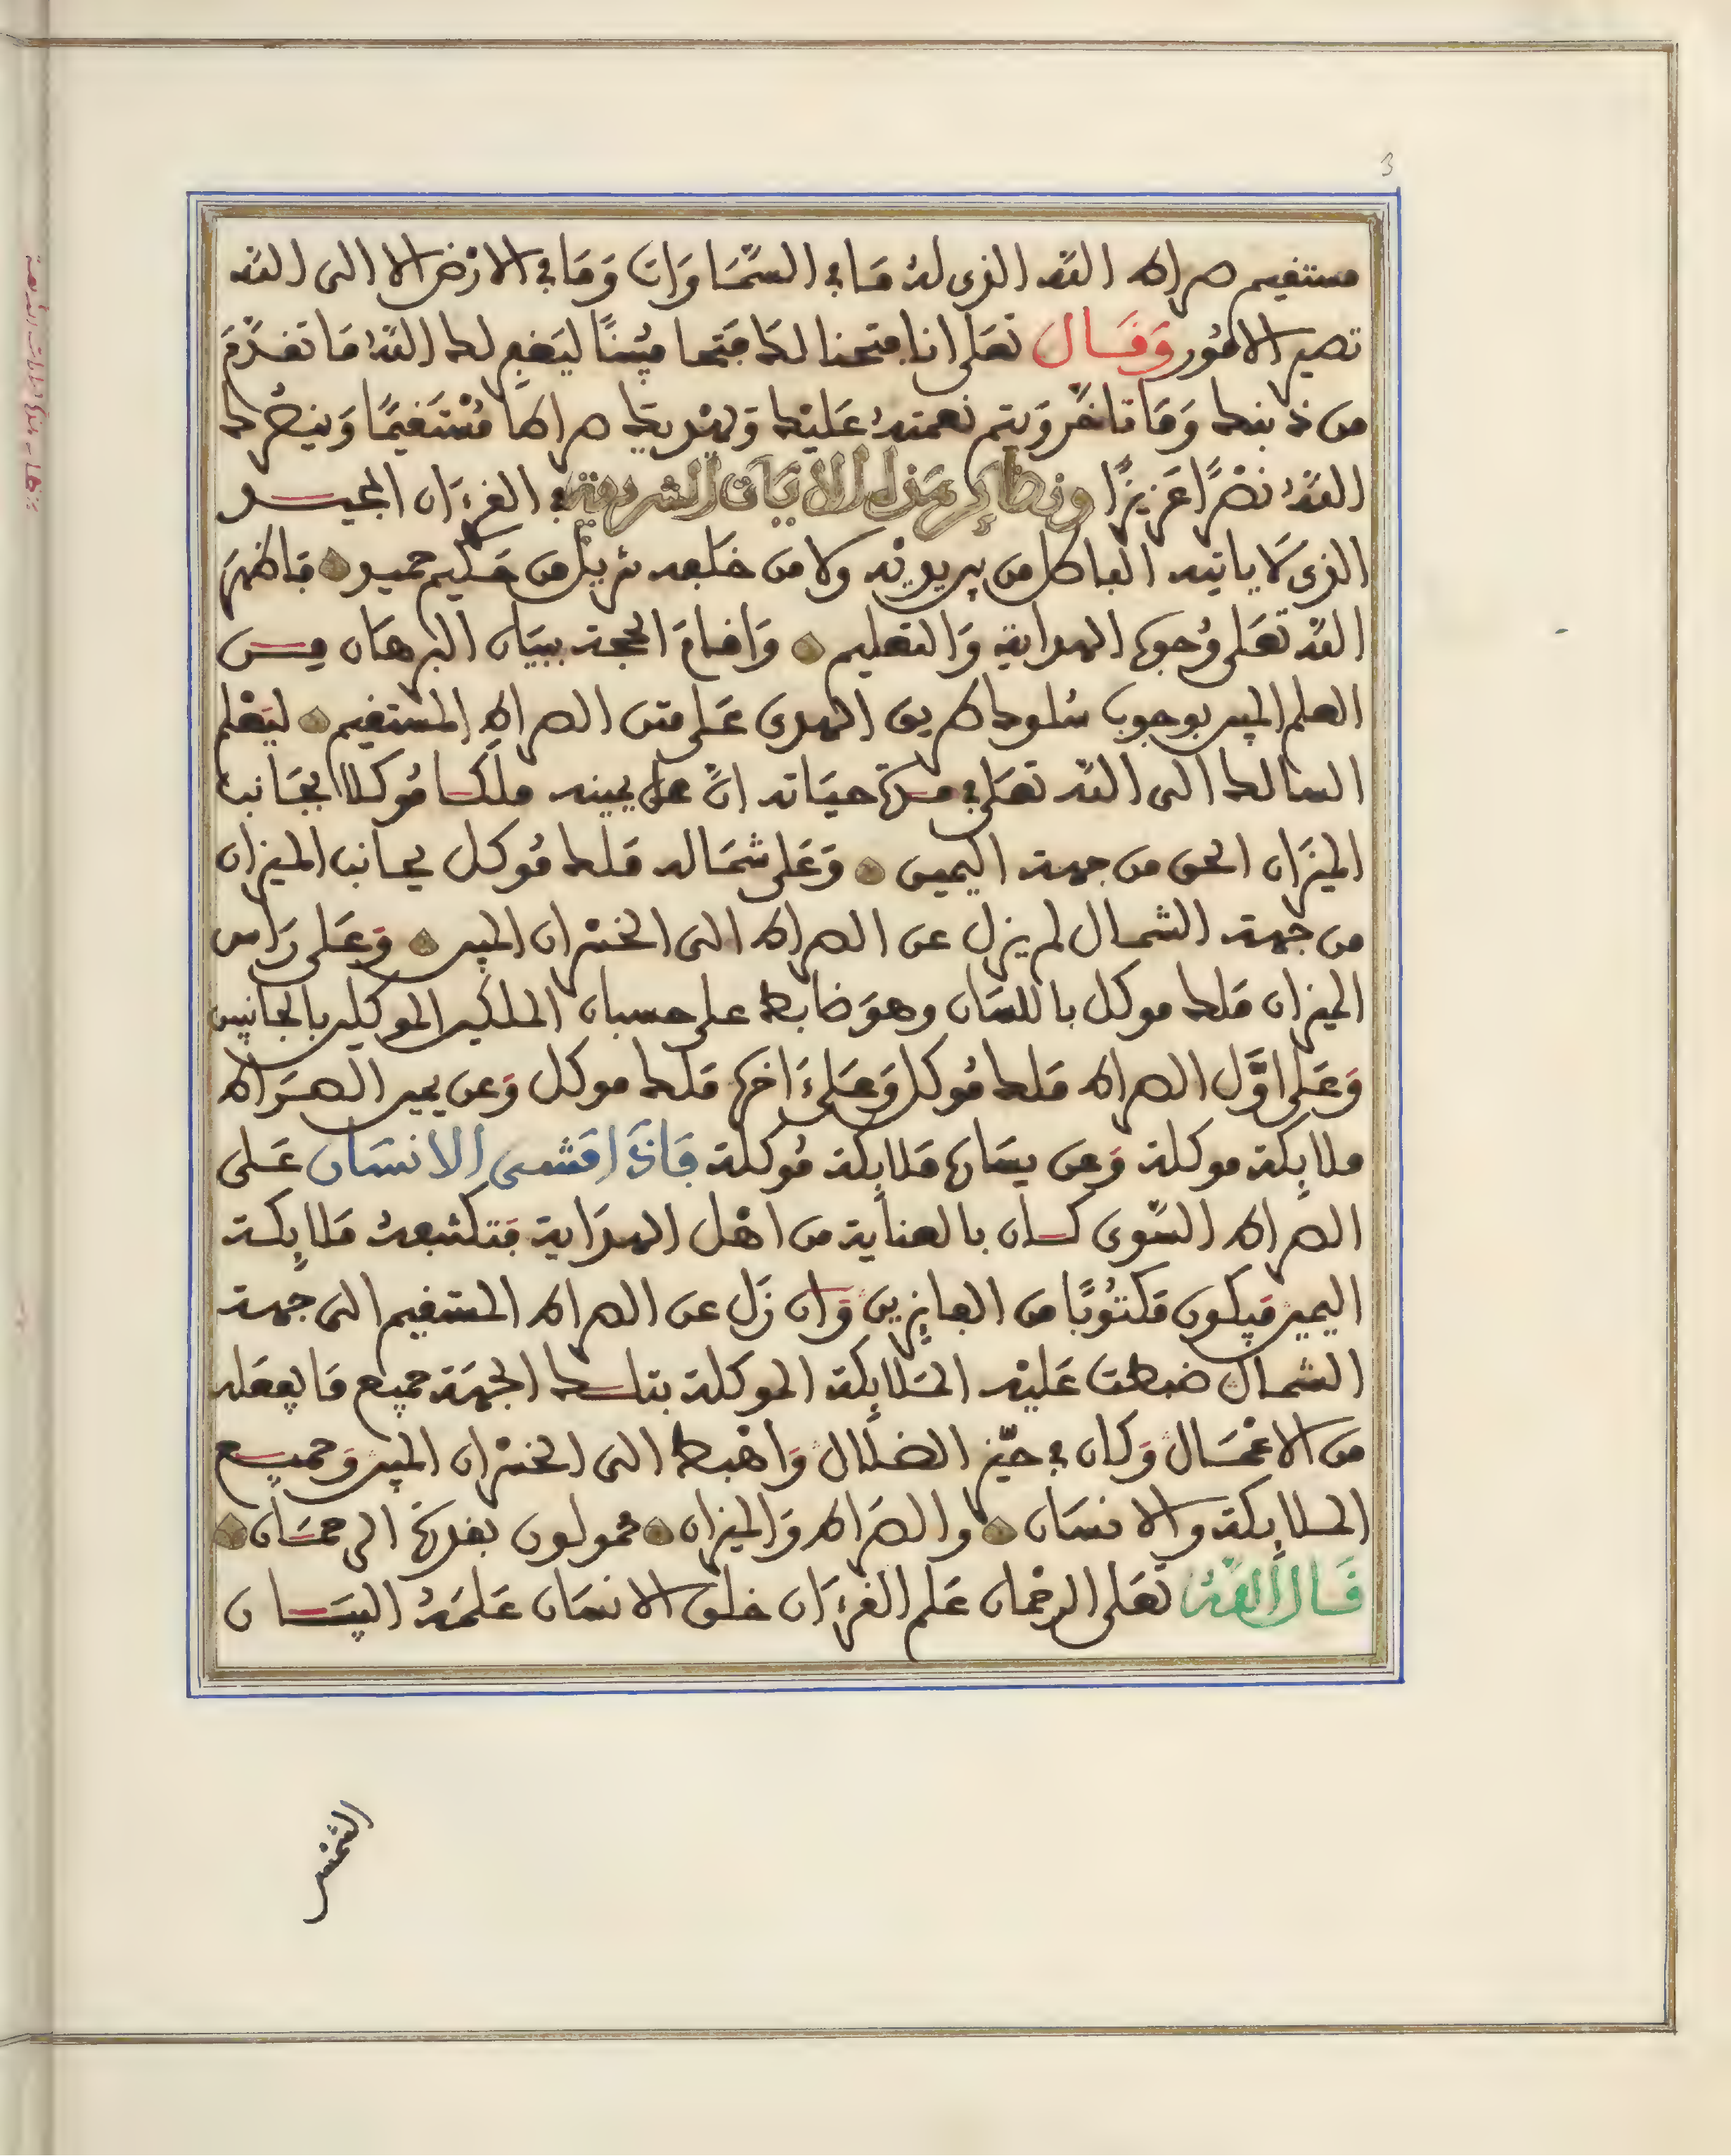 3
مستقيم صراط الله الذى لهُ مَا في السَّمَاوَات وَمَا في الارْض الا الى الله
تصير الامُور وَقَال تعَلى انا فتحنا لك فَتحا مُبِينًا ليَغفر لك اللهُ مَا تقدَّمَ
من ذنبك وَمَا تاخَّر وَيتم نعمتهُ عَليْك وَيهْديك صراطًا مُسْتَقيمًا وَينصُرك
اللهُ نصْرًا عَزيزًا ونظاير هَذه الايَات الشريفة في القرءَان المجيد
الذى لَا ياتيه الباطل من بين يديْه ولا من خلفه تنزيل من حَكيم حميد فاظهَر
الله تعَلى وُجوه الهداية وَالتعليم وَاقامَ الحجة ببيَان البرهَان مِن
العلم المبين بوجوب سُلوك طريق الهدى عَلى متن الصراط المستقيم ليَعْلم
السالك الى الله تعَلى في مدة حيَاته انَّ على يمينه ملكا مُوكلا بجَانب
الميزَان الحق من جهة اليمين وَعَلى شمَاله مَلك مُوكل بجانب الميزان
من جهة الشمال لم يزل عن الصراط الى الخسْران المبين وَعَلى رَاس
الميزان مَلك موكل باللسَان وهوَ ضابط على حسبان الملكين الموكلين بالجانبين
وَعَلى اوَّل الصراط مَلك مُوكل وَعَلى ءَاخره مَلك موكل وَعن يمين الصرَاط
ملايكة موكلة وَعن يسَاره مَلايكة مُوكلة فَاذَا مَشى الانسَان عَلى
الصراط السَّوى كان بالعناية من اهْل الهدَاية فتكتبهُ مَلايكة
اليمين فيَكون مَكتُوبًا من الفايزين وَان زَل عن الصراط المستقيم الى جهة
الشمال ضبطت عَليْه المَلايكة الموكلة بتلك الجهَة جميع مَا يفعَله
من الاعْمَال وَكان في حيّز الضلال وَاهْبط الى الخسْران المبين وَجميع
الملايكة والانسَان والصرَاط وَالميزان محمولون بقدرة الرحمَان
قَال اللهُ تعَلى الرحْمان عَلم القرءَان خلق الانسَان عَلمَهُ البيَان
الشمْس